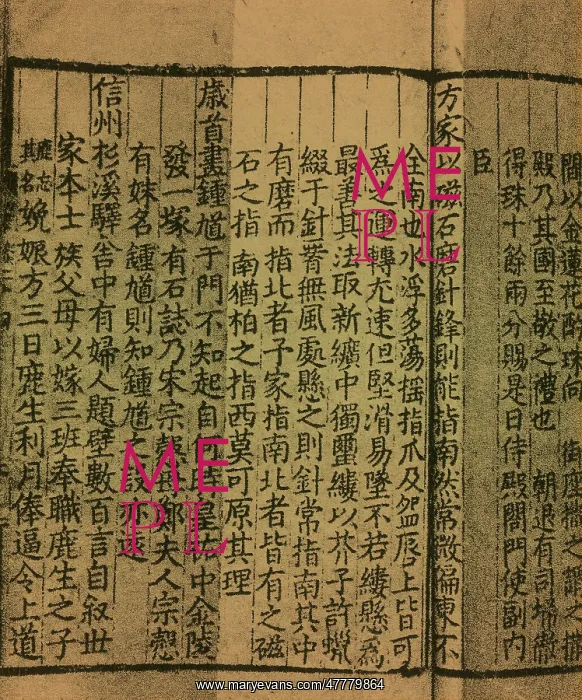 閤以金蓮花酌珠向 御座撒之謂之撒
殿乃其國至敬之禮也 朝退有司掃徹
得珠十餘兩分賜是日侍殿閤門使副內
臣
方家以磁石磨針鋒則能指南然常微偏東不
全南也水浮多蕩搖指爪及盌唇上皆可
爲之運轉尤速但堅滑易墜不若縷懸為
最善其法取新纊中獨蠒縷以芥子許蠟
綴于針䏿無風處懸之則針常指南其中
有磨而指北者予家指南北者皆有之磁
石之指 南猶柏之指西莫可原其理
歲首畫鍾馗于門不知起自何時皇祐中金陵
發一塚有石誌乃宋宗愨母鄭夫人宗愨
有妹名鍾馗則知鍾馗之設亦遠
信州杉溪驛舍中有婦人題壁數百言自叙世
家本士族父母以嫁三班奉職鹿生之子
鹿忘其名娩娠方三日鹿生利月俸逼令上道
ME
PL
ME
PL
www.maryevans.com/47779864